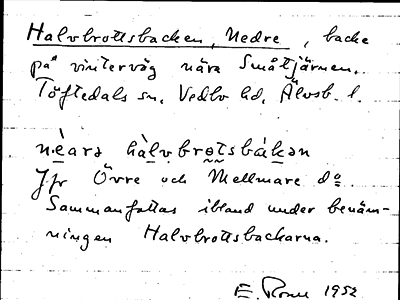 Halvbrottsbacken, Nedre, backe
på vinterväg nära Småtjärnen.
Töftedals sn, Vedbo hd, Älvsb. l.
nèarə hàlvbrotsbákən
Jfr Övre och Mellmare do.
Sammanfattas ibland under benäm-
ningen Halvbrottsbackarna.
E. 1952